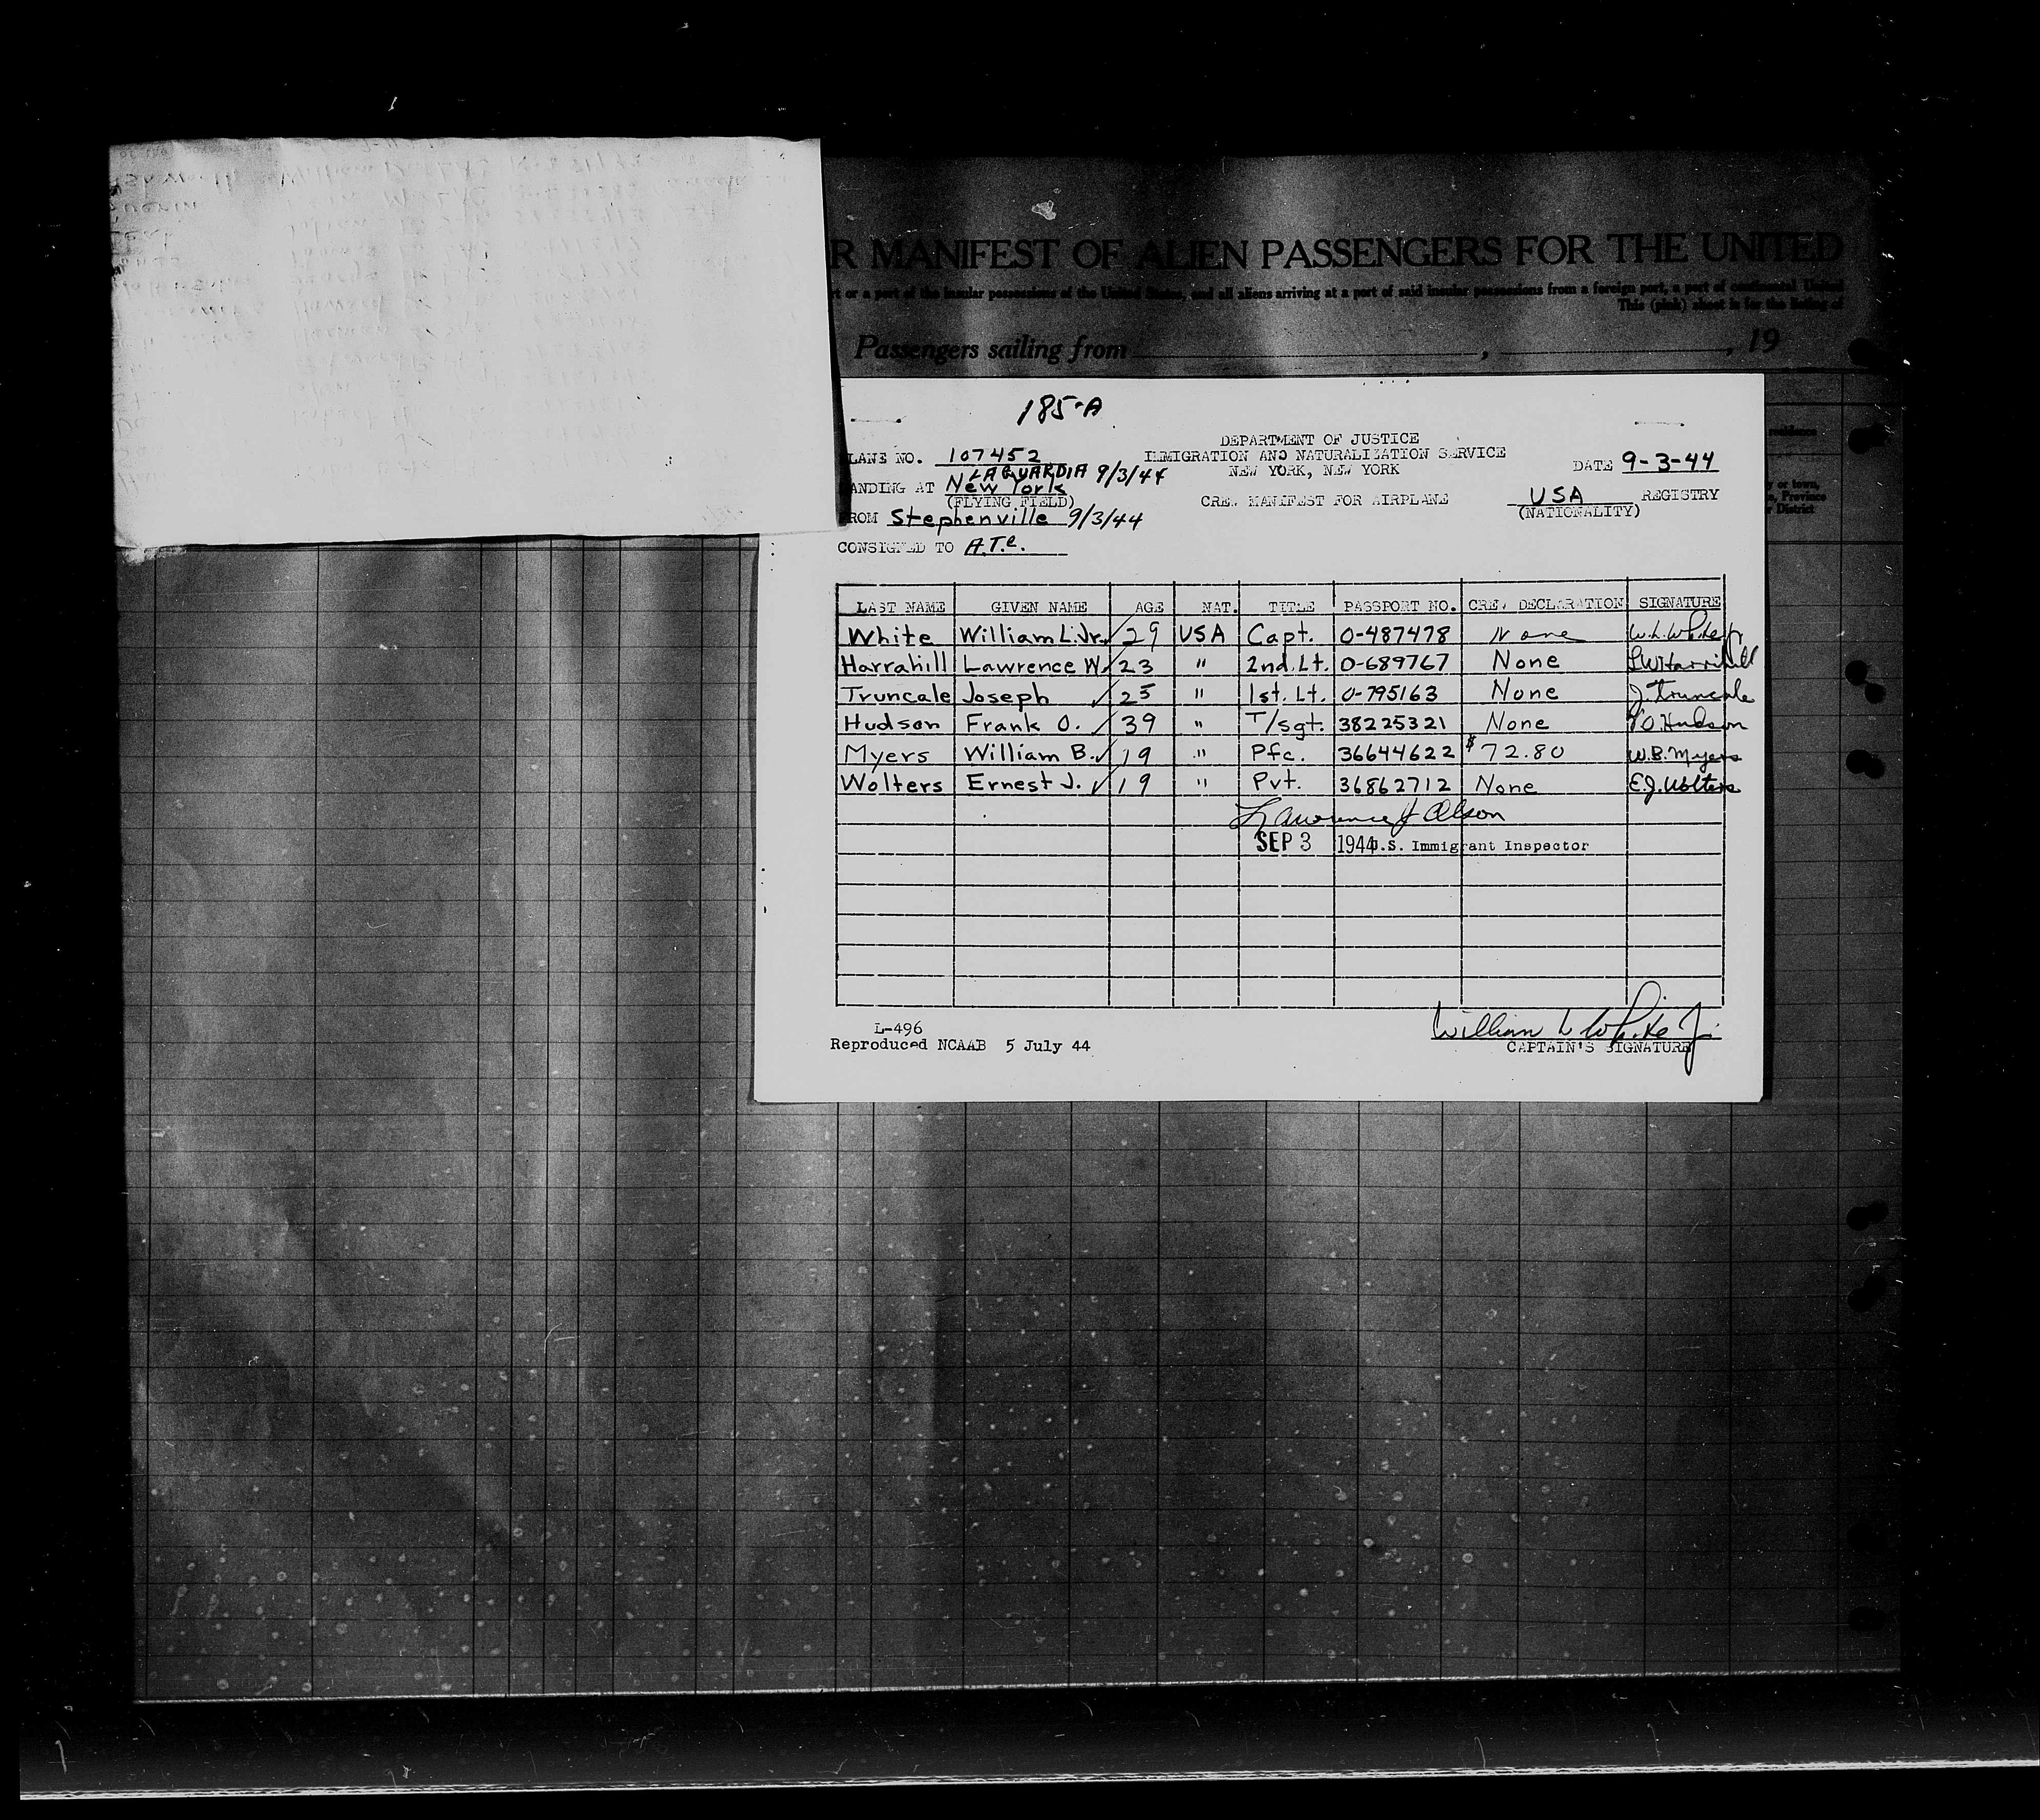 R MANIFEST OF ALIEN PASSENGERS FOR THE UNITED
t or a part of the insular possessions of the United States, and all aliens arriving at a port of said insular possessions from a foreign port, a port of continental United
This (pink) sheet is for the listing of
Passengers sailing from , , 19
185-A
DEPARTMENT OF JUSTICE
LANE NO. 107452 IMMIGRATION AND NATURALIZATION SERVICE DATE 9-3-44
LAGUARDIA 9/3/44 NEW YORK, NEW YORK
ANDING AT New York
(FLYING FIELD) CREW MANIFEST FOR AIRPLANE USA REGISTRY
ROM Stephenville 9/3/44 (NATIONALITY)
CONSIGNED TO A.T.C.
LAST NAME GIVEN NAME AGE NAT. TITLE PASSPORT NO. CREW DECLARATION SIGNATURE
White William L. Jr. 29 USA Capt. O-487478 None W.L. White Jr
Harrahill Lawrence W. 23 " 2nd. Lt. O-689767 None LW Harrahill
Truncale Joseph 25 " 1st. Lt. O-795163 None J. Truncale
Hudson Frank O. 39 " T/sgt. 38225321 None F O. Hudson
Myers William B. 19 " Pfc. 36644622 $72.80 W.B. Myers
Wolters Ernest J. 19 " Pvt. 36862712 None E.J. Wolters
Lawrence J Olson
SEP 3 1944 U.S. Immigrant Inspector
L-496
William L White Jr
Reproduced NCAAB 5 July 44
CAPTAIN'S SIGNATURE
residence
y or town,
e, Province
r District